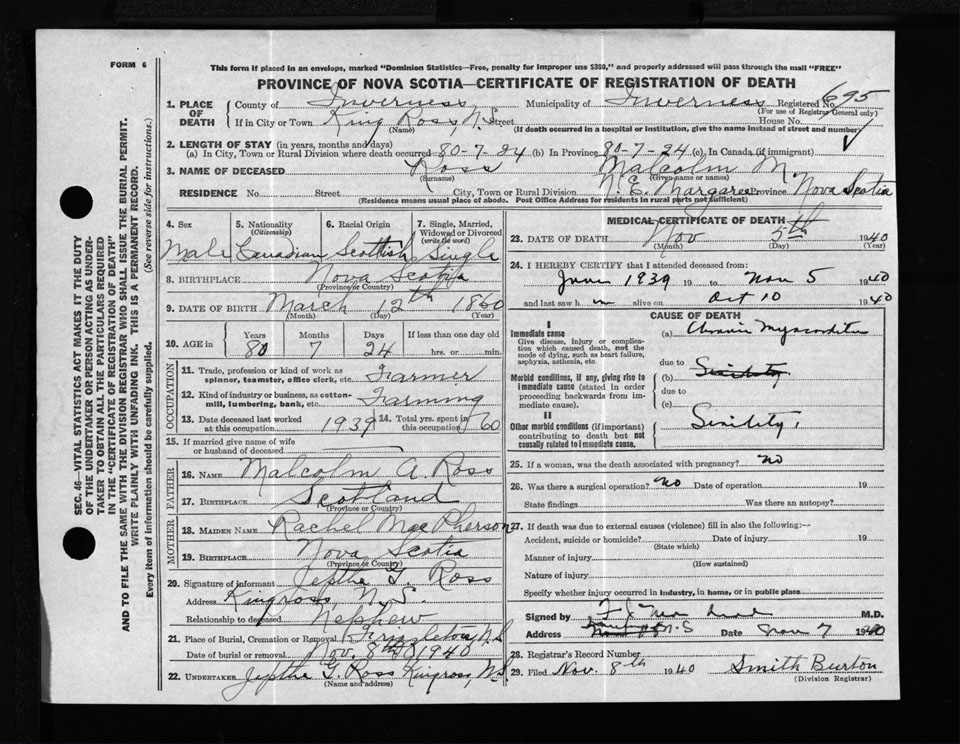 FORM 6
This form if placed in an envelope, marked "Dominion Statistics—Free, penalty for improper use $300," and properly addressed will pass through the mail "FREE"
PROVINCE OF NOVA SCOTIA—CERTIFICATE OF REGISTRATION OF DEATH
1. PLACE OF DEATH
County of Inverness Municipality of Inverness Registered No. 695
(For use of Registrar General only)
If in City or Town King Ross, N.S. Street House No.
(Name) (If death occurred in a hospital or institution, give the name instead of street and number)
2. LENGTH OF STAY (in years, months and days)
(a) In City, Town or Rural Division where death occurred 80-7-24 (b) In Province 80-7-24 (c) In Canada (if immigrant)
3. NAME OF DECEASED Ross Malcolm M.
(Surname) (Given name or names)
RESIDENCE No. Street City, Town or Rural Division N. E. Margaree Province Nova Scotia
(Residence means usual place of abode. Post Office Address for residents in rural parts not sufficient)
4. Sex 5. Nationality (Citizenship) 6. Racial Origin 7. Single, Married, Widowed or Divorced (write the word)
Male Canadian Scottish Single
8. BIRTHPLACE Nova Scotia
(Province or Country)
9. DATE OF BIRTH March 12th 1860
(Month) (Day) (Year)
10. AGE in Years Months Days If less than one day old
80 7 24 hrs. or min.
OCCUPATION
11. Trade, profession or kind of work as spinner, teamster, office clerk, etc. Farmer
12. Kind of industry or business, as cotton-mill, lumbering, bank, etc. Farming
13. Date deceased last worked at this occupation 1939 14. Total yrs. spent in this occupation 60
15. If married give name of wife or husband of deceased
FATHER
16. NAME Malcolm A. Ross
17. BIRTHPLACE Scotland
(Province or Country)
MOTHER
18. MAIDEN NAME Rachel MacPherson
19. BIRTHPLACE Nova Scotia
(Province or Country)
20. Signature of informant Jeptha G. Ross
Address Kingross, N.S.
Relationship to deceased Nephew
21. Place of Burial, Cremation or Removal N.S
Date of burial or removal Nov. 8th 1940
22. UNDERTAKER Jeptha G. Ross Kingross, N.S.
(Name and address)
MEDICAL CERTIFICATE OF DEATH
23. DATE OF DEATH Nov 5th 1940
(Month) (Day)
24. I HEREBY CERTIFY that I attended deceased from:
June 1939 19 to Nov 5 1940
and last saw h m alive on Oct 10 1940
CAUSE OF DEATH
I
Immediate cause (a) Chronic Myocarditis
Give disease, injury or complication which caused death, not the mode of dying, such as heart failure, asphyxia, asthenia, etc.
due to
Morbid conditions, if any, giving rise to immediate cause (stated in order proceeding backwards from immediate cause). (b) Senility
due to
(c)
II
Other morbid conditions (if important) contributing to death but not causally related to immediate cause. Senility,
25. If a woman, was the death associated with pregnancy? No
26. Was there a surgical operation? No Date of operation 19
State findings Was there an autopsy?
27. If death was due to external causes (violence) fill in also the following:—
Accident, suicide or homicide? Date of injury 19
(State which)
Manner of injury
(How sustained)
Nature of injury
Specify whether injury occurred in industry, in home, or in public place
Signed by M.D.
Address N.S Date Nov 7 1940
28. Registrar's Record Number
29. Filed Nov. 8th 1940 Smith Burton
(Division Registrar)
SEC. 46—VITAL STATISTICS ACT MAKES IT THE DUTY
OF THE UNDERTAKER OR PERSON ACTING AS UNDER-
TAKER TO OBTAIN ALL THE PARTICULARS REQUIRED
IN THE "CERTIFICATE OF REGISTRATION OF DEATH"
AND TO FILE THE SAME WITH THE DIVISION REGISTRAR WHO SHALL ISSUE THE BURIAL PERMIT.
WRITE PLAINLY WITH UNFADING INK. THIS IS A PERMANENT RECORD.
Every item of information should be carefully supplied. (See reverse side for instructions.)